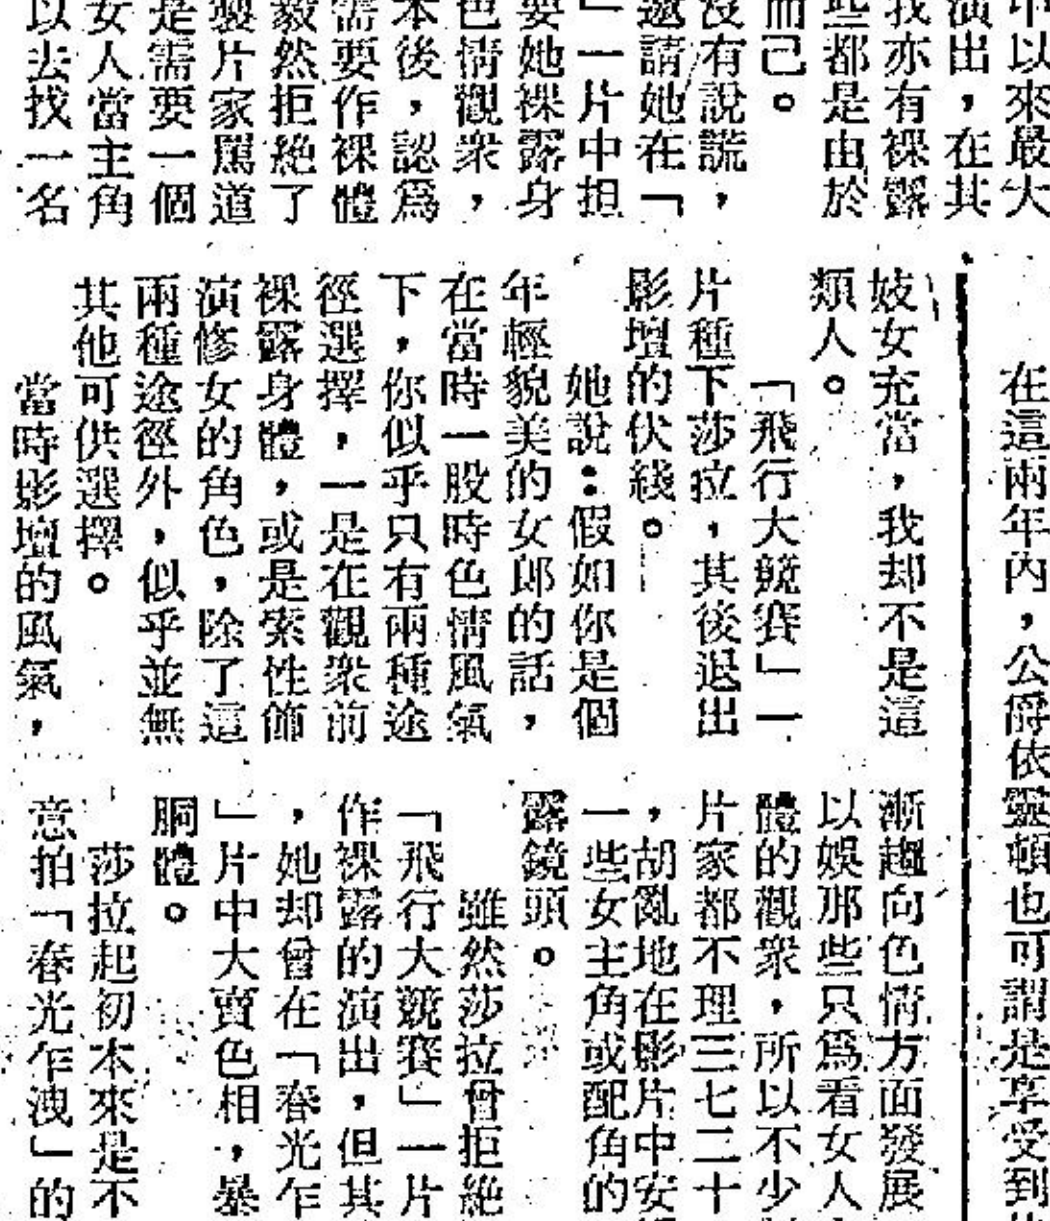 中以來最大
演出，在其
我亦有裸露
些都是由於
而己。
沒有說謊，
邀請她在「
」一片中担
要她裸露身
色情觀衆，
本後，認爲
需要作裸體
毅然拒絶了
製片家駡道
是需要一個
女人當主角
以去找一名
妓女充當，我却不是這
類人。
「飛行大競賽」一
片種下莎拉，其後退出
影壇的伏綫。
她說：假如你是個
年輕貌美的女郎的話，
在當時一股時色情風氣
下，你似乎只有兩種途
徑選擇，一是在觀衆前
裸露身體，或是索性飾
演修女的角色，除了這
兩種途徑外，似乎並無
其他可供選擇。
當時影壇的風氣，
漸趨向色情方面發展
以娛那些只爲看女人
體的觀衆，所以不少
片家都不理三七二十
，胡亂地在影片中安
一些女主角或配角的
露鏡頭。
雖然莎拉曾拒絶
「飛行大競賽」一片
作裸露的演出，但其
，她却曾在「春光乍
」片中大賣色相，暴
胴體。
莎拉起初本來是不
意拍「春光乍洩」的
在這兩年內，公爵依靈頓也可謂是享受到